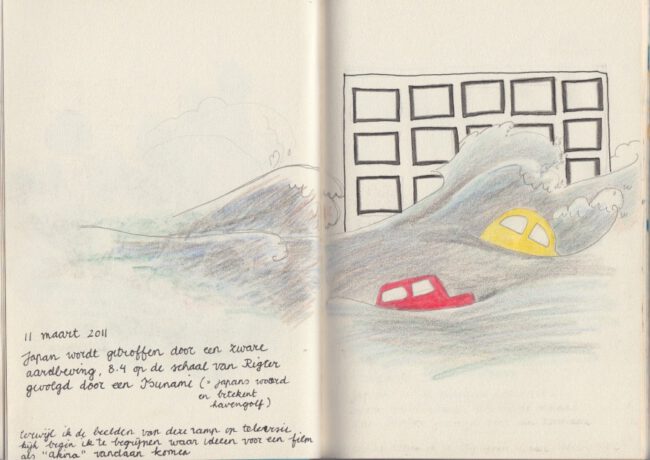 11 maart 2011
Japan wordt getroffen door een zware
aardbeving, 8.4 op de schaal van Rigter
gevolgd door een Tsunami (= japans woord
en betekent
havengolf)
terwijl ik de beelden van deze ramp op televisie
kijk begin ik te begrijpen waar ideeen voor een film
als "akira" vandaan komen